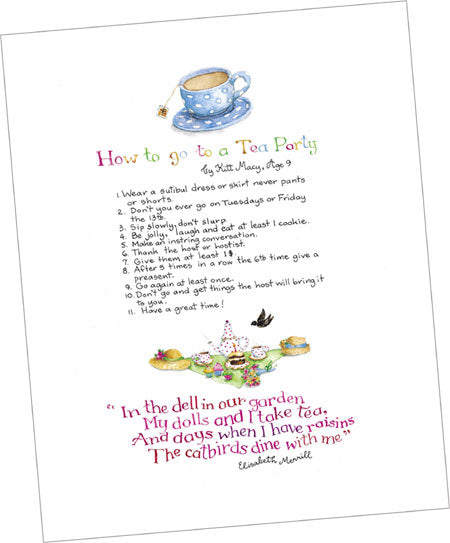 How to go to a Tea Party
by Kitt Macy, Age 9
1. Wear a sutibul dress or shirt never pants
or shorts.
2. Don't you ever go on Tuesdays or Friday
the 13th.
3. Sip slowly, don't slurp.
4. Be jolly, laugh and eat at least 1 cookie.
5. Make an instring conversation.
6. Thank the host or hostist.
7. Give them at least 1$.
8. After 5 times in a row the 6th time give a
preasent.
9. Go again at least once.
10. Don't go and get things the host will bring it
to you.
11. Have a great time!
"In the dell in our garden
My dolls and I take tea,
And days when I have raisins
The catbirds dine with me"
Elisabeth Merrill